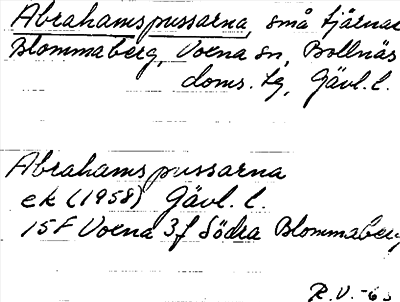 Abrahamspussarna, små tjärnar
Blommaberg, Voxna sn, Bollnäs
doms. tg, Gävl. l.
Abrahamspussarna
ek (1958) Gävl. l.
15F Voxna 3f Södra Blommaberg
R.V. -63